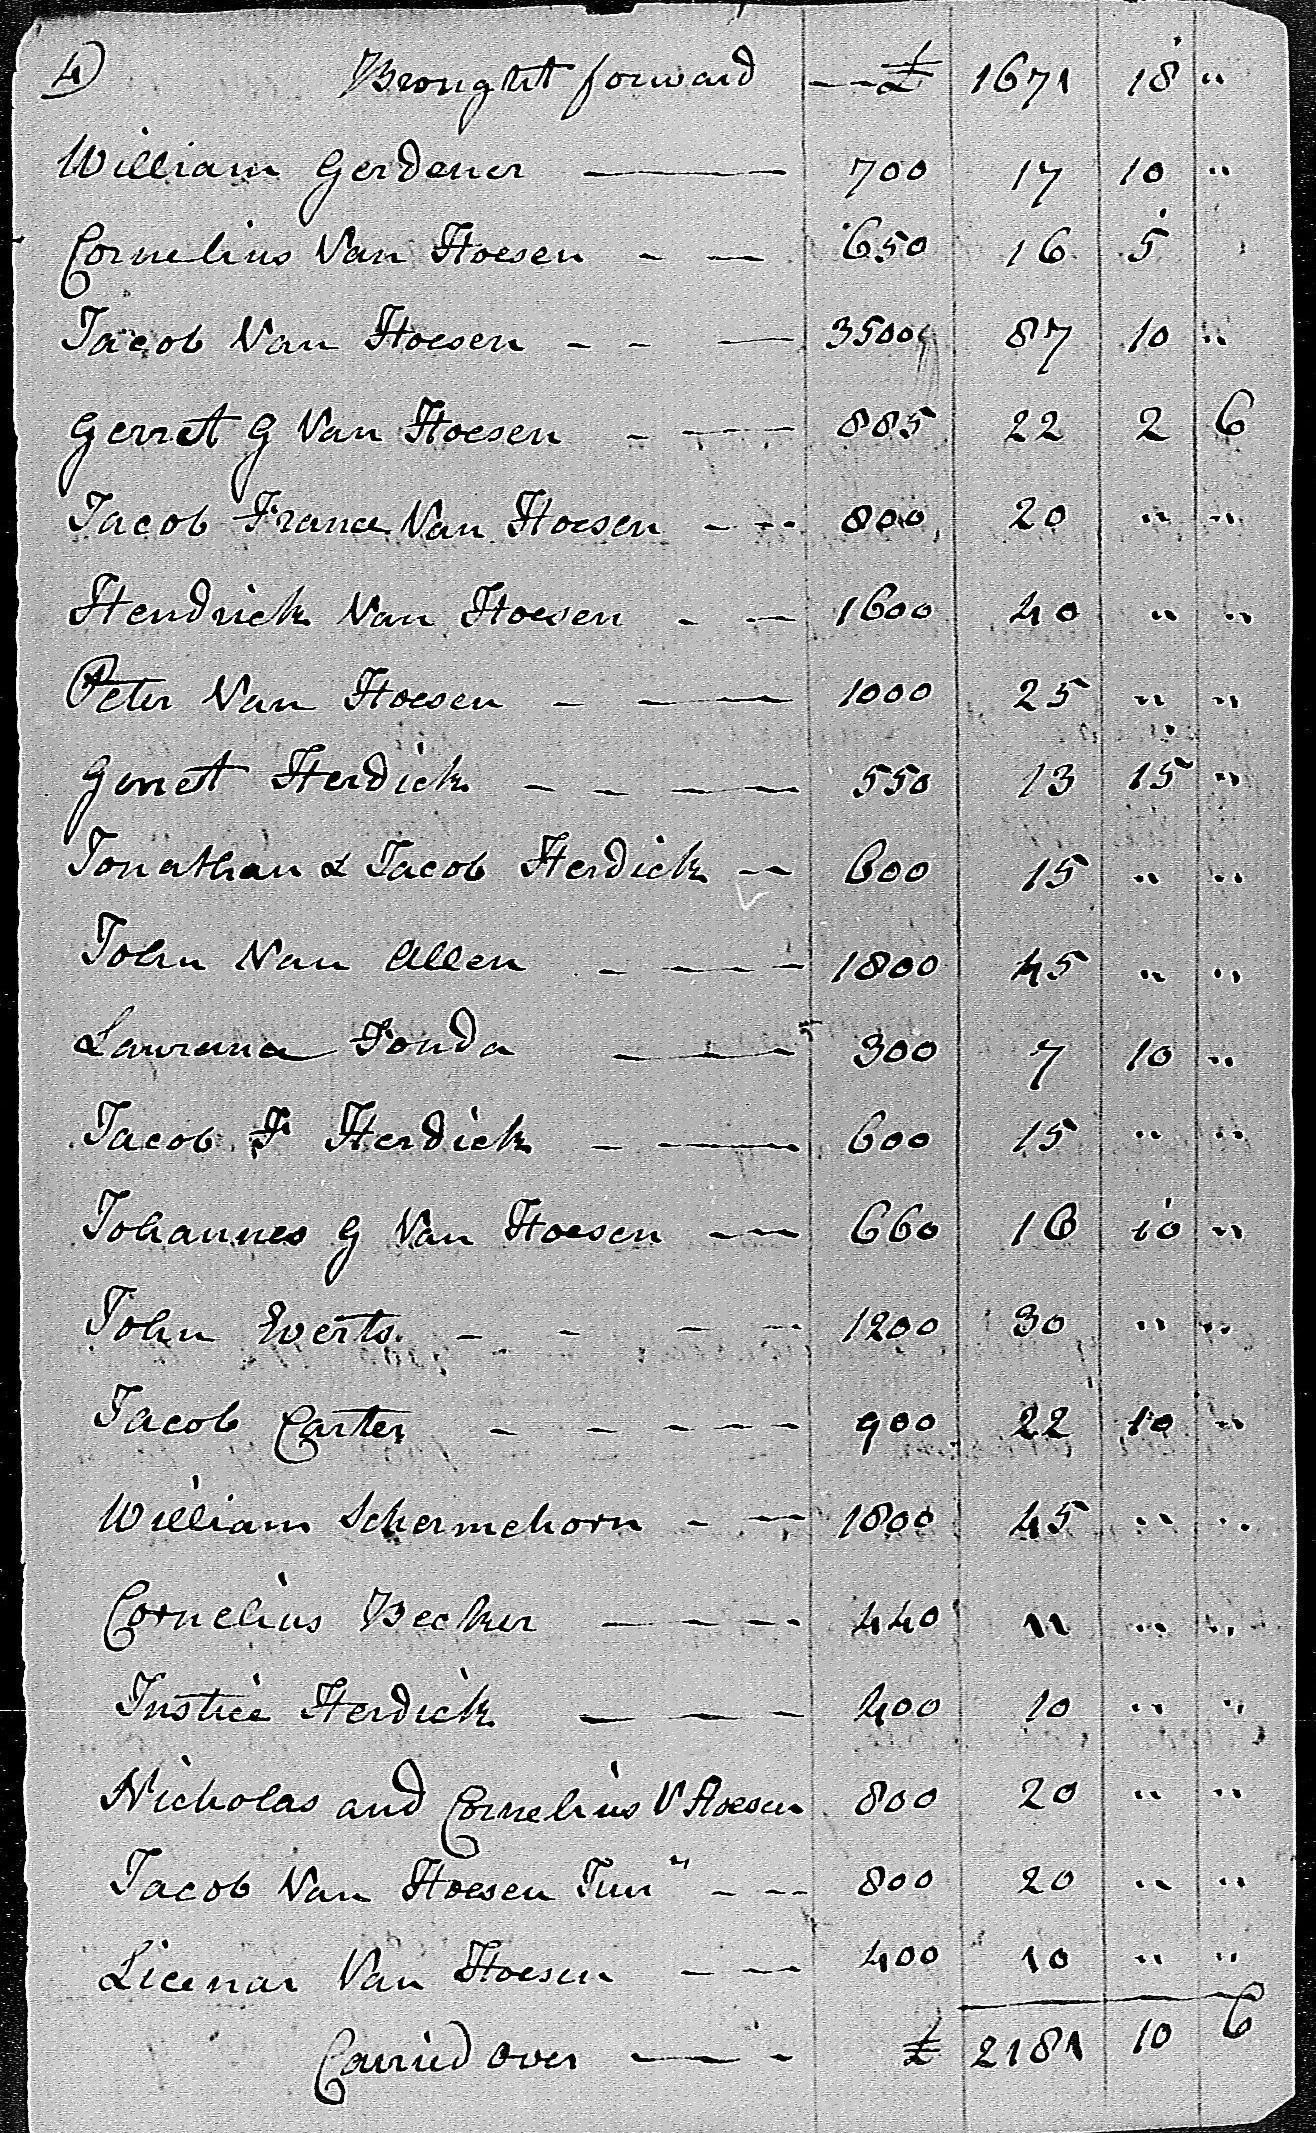 4) Brought forward -- £ 1671 18 "
William Gerdener — 700 17 10 "
Cornelius Van Hoesen - — 650 16 5
Jacob Van Hoesen - - — 3500 87 10 "
Gerret G Van Hoesen - — 885 22 2 6
Jacob France Van Hoesen - - - 800 20 " "
Hendrick Van Hoesen - — 1600 40 " "
Peter Van Hoesen - — — 1000 25 " "
Gerret Herdick - - — — 550 13 15 "
Jonathan & Jacob Herdick - - 600 15 " "
John Van Allen - — — 1800 45 " "
Lawrance Fonda — — — 300 7 10 "
Jacob F Herdick - — — 600 15 " "
Johannes G Van Hoesen — — 660 16 10 "
John Everts. - - - - 1200 30 " "
Jacob Carter - - - - - 900 22 10 "
William Schermehorn - — 1800 45 " "
Cornelius Becker — - - - 440 11 " "
Justice Herdick — — — 400 10 " "
Nicholas and Cornelius V Hoesen 800 20 " "
Jacob Van Hoesen Junr - - - 800 20 " "
Licenar Van Hoesen - — 400 10 " "
Carried over — - - £ 2181 10 6